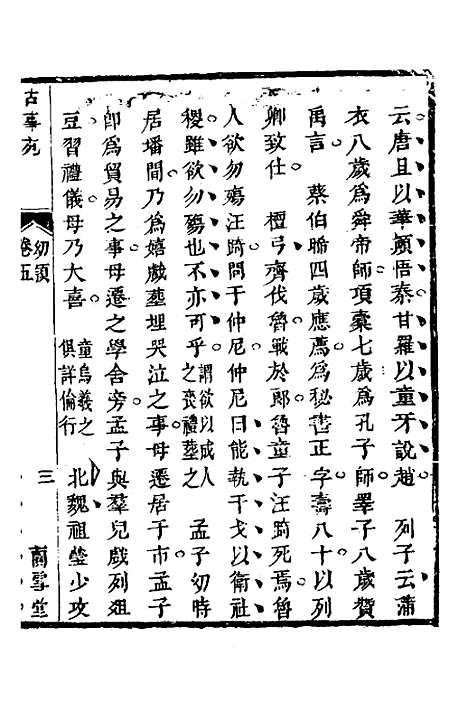 云唐且以華顛悟秦甘羅以童牙說趙　列子云蒲
衣八歲爲舜帝師項橐七歲爲孔子師睪子八歲贊
禹言　蔡伯晞四歲應薦爲秘書正字壽八十以列
卿致仕　檀弓齊伐魯戰於郎魯童子汪踦死焉魯
人欲勿殤汪踦問于仲尼仲尼曰能執干戈以衛社
稷雖欲勿殤也不亦可乎謂欲以成人之喪禮葬之　孟子幼時
居墦間乃爲嬉戲葬埋哭泣之事母遷居于市孟子
即爲貿易之事母遷之學舍旁孟子與羣兒戲列俎
豆習禮儀母乃大喜　童烏羲之俱詳倫行　北魏祖瑩少攻
古事苑　幼類　卷五　三　蘭雪堂